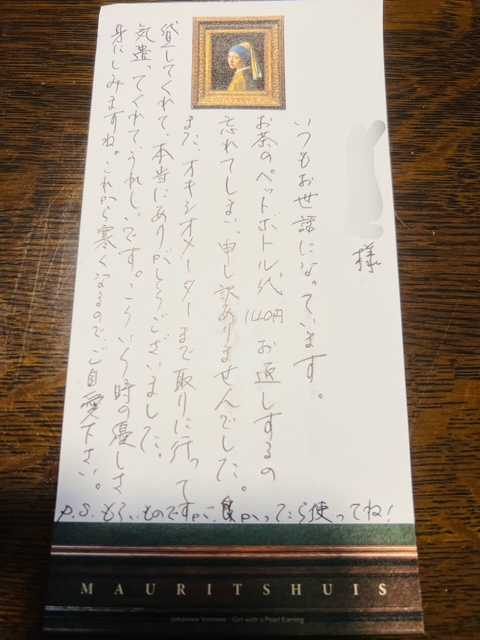 様
いつもお世話になっています。
お茶のペットボトル代、140円 お返しするの
忘れてしまい、申し訳ありませんでした。
また、オキシオメーターまで取りに行って
貸してくれて、本当にありがとうございました。
気遣ってくれて、うれしいです。こういう時の優しさ
身にしみますね。これから寒くなるので、ご自愛下さい。
P.S. もらいものですが、良かったら使ってね!
MAURITSHUIS
Johannes Vermeer Girl with a Pearl Earring